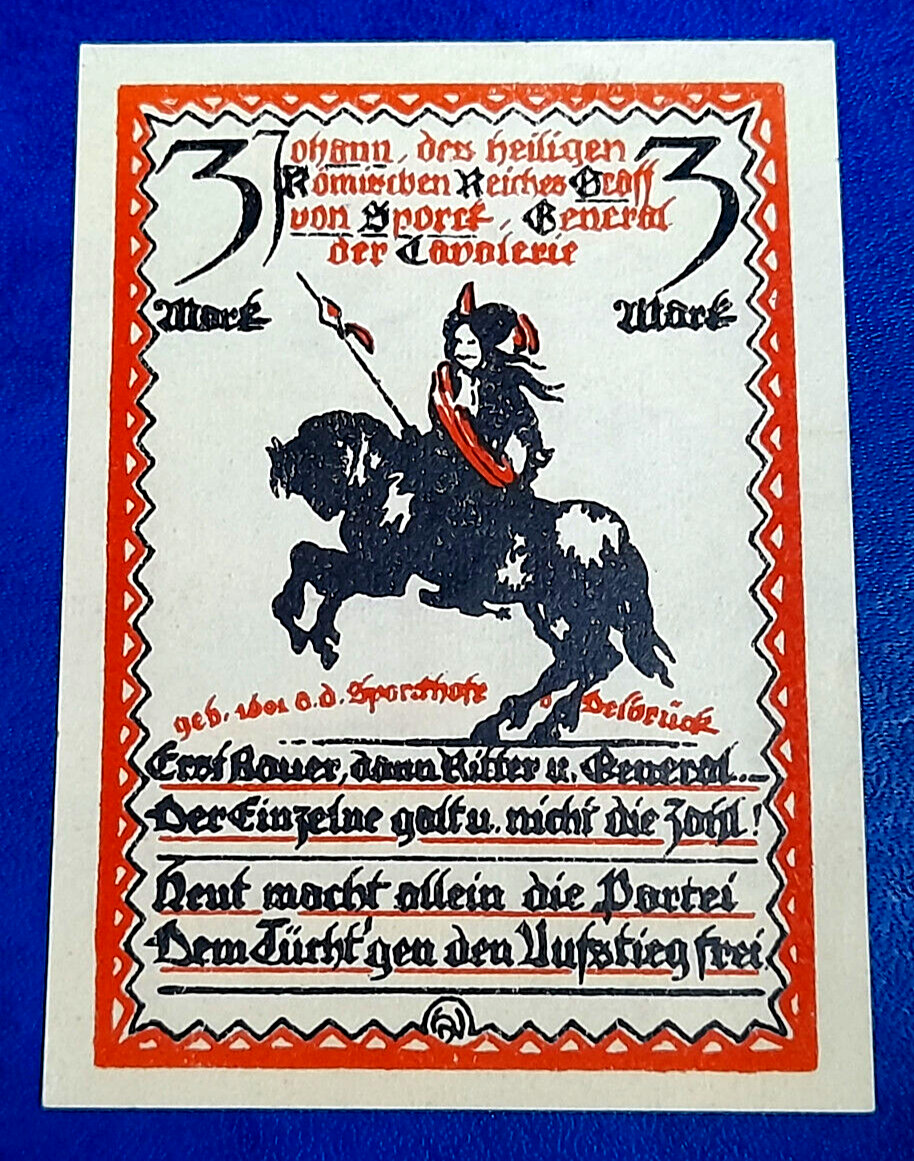 3 Johann, des heiligen 3
Römischen Reiches Graff
von Sporck, General
der Cavalerie
Mark Mark
geb. 1601 a.d. Sporckhofe b Delbrück
Erst Bauer, dann Ritter u. General...
Der Einzelne galt u. nicht die Zahl!
Heut macht allein die Partei
Dem Tücht'gen den Aufstieg frei